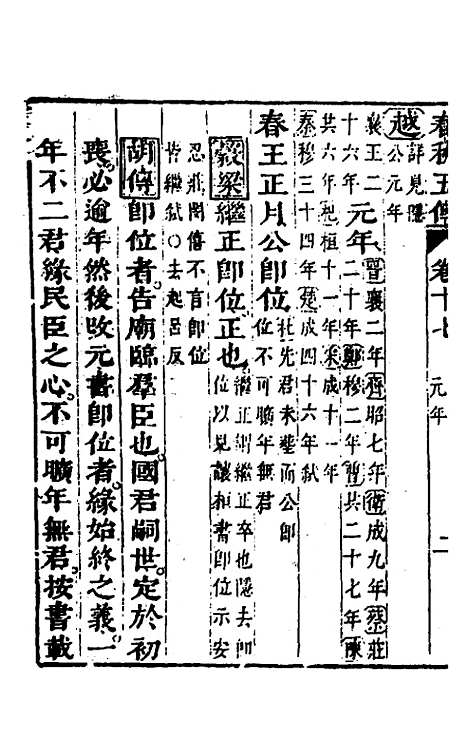 春秋五傳 卷十七 元年 二
越 詳見隱公元年
襄王二十六年 元年 晉襄二年齊昭七年衛成九年蔡莊二十年鄭穆二年曹共二十七年陳
共六年杞桓十一年宋成十一年
秦穆三十四年楚成四十六年弒
春王正月公即位 杜先君未塟而公即位不可曠年無君
穀梁 繼正即位正也 繼正謂繼正卒也隱去即位以見讓桓書即位示安
忍莊閔僖不言即位皆繼弒○去起呂反
胡傳 即位者告廟臨羣臣也國君嗣世定於初
喪必逾年然後改元書即位者緣始終之義一
年不二君緣民臣之心不可曠年無君按書載